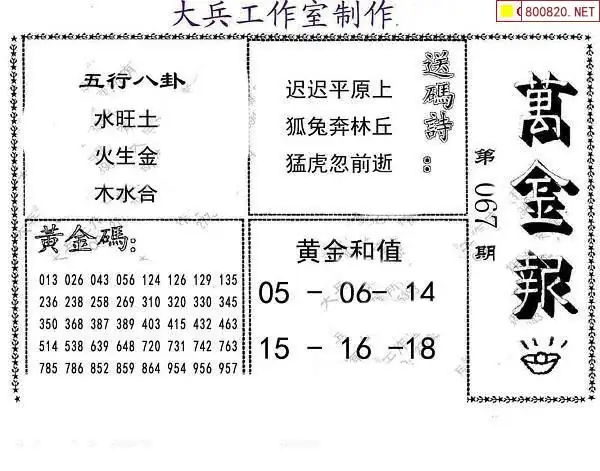 大兵工作室制作
800820.NET
五行八卦
水旺土
火生金
木水合
送碼詩:
迟迟平原上
狐兔奔林丘
猛虎忽前逝
萬金報
第067期
黃金碼:
013 026 043 056 124 126 129 135
236 238 258 269 310 320 330 345
350 368 387 389 403 415 432 463
514 538 639 648 720 731 742 763
785 786 852 859 864 954 956 957
黄金和值
05 - 06- 14
15 - 16 -18